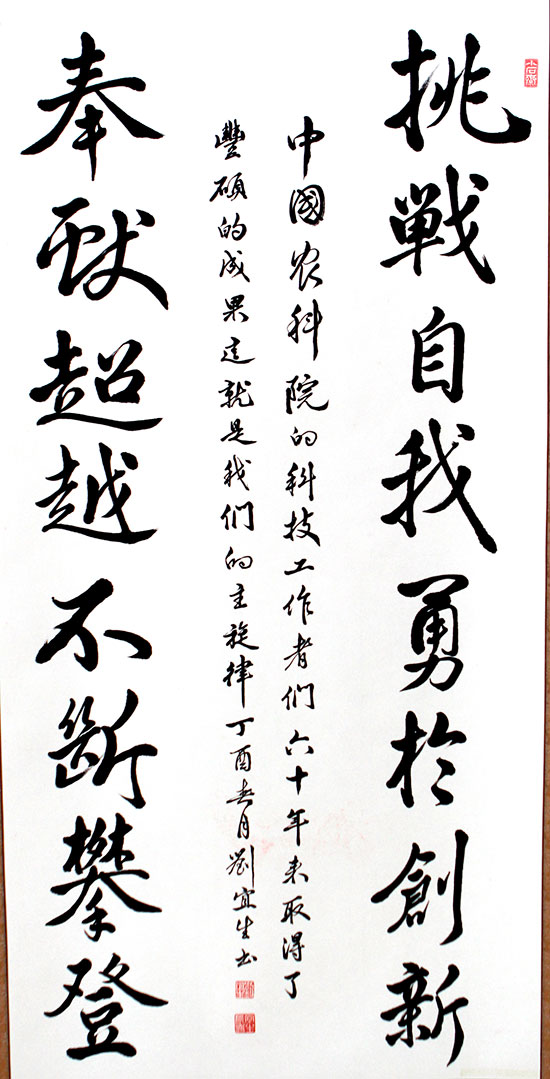 挑戰自我勇於創新
中國农科院的科技工作者们六十年来取得了
豐碩的成果這就是我们的主旋律丁酉春月劉宜生书
奉献超越不斷攀登